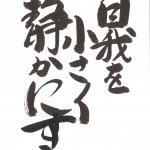 自我を
小さく
静かにす